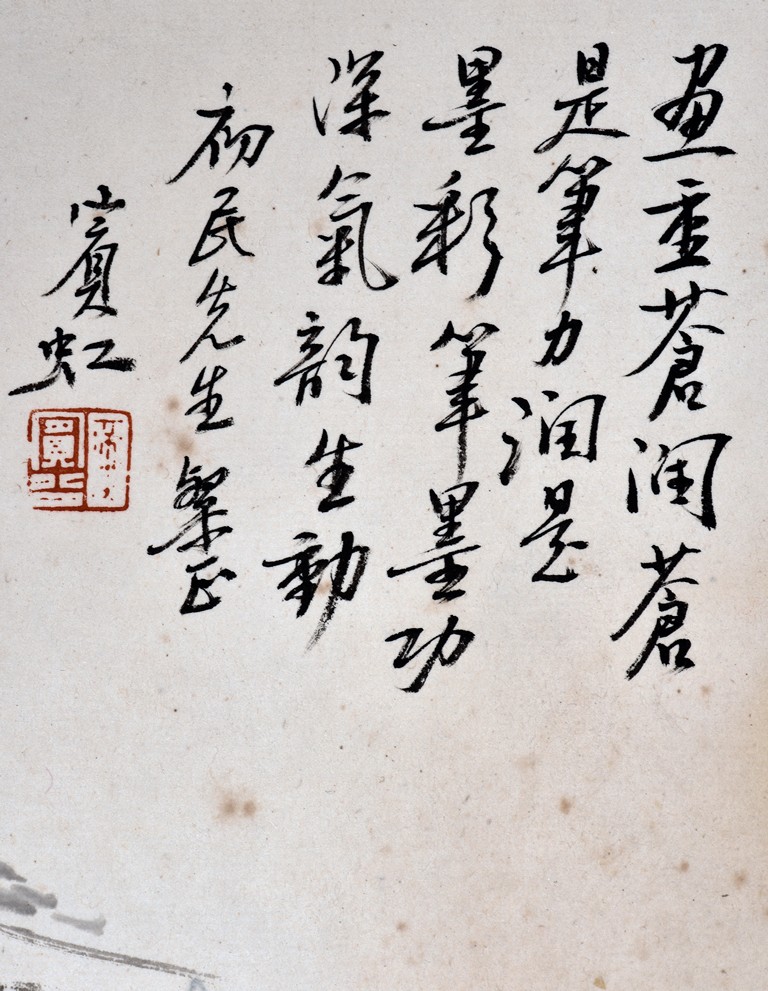 画重蒼润蒼
是筆力润是
墨彩筆墨功
深氣韵生動
初民先生粲正
賓虹